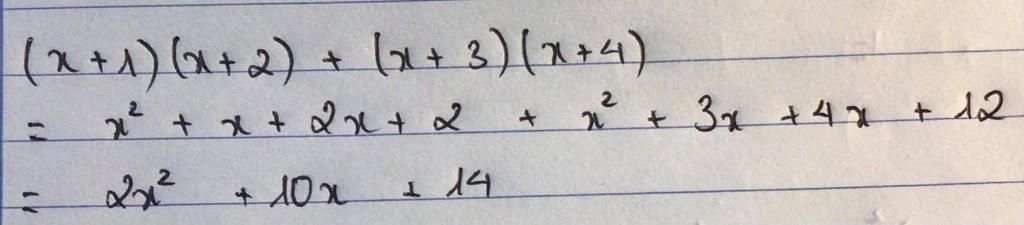 (x+1)(x+2) + (x+3)(x+4)
= x² + x + 2x + 2 + x² + 3x + 4x + 12
= 2x² + 10x + 14